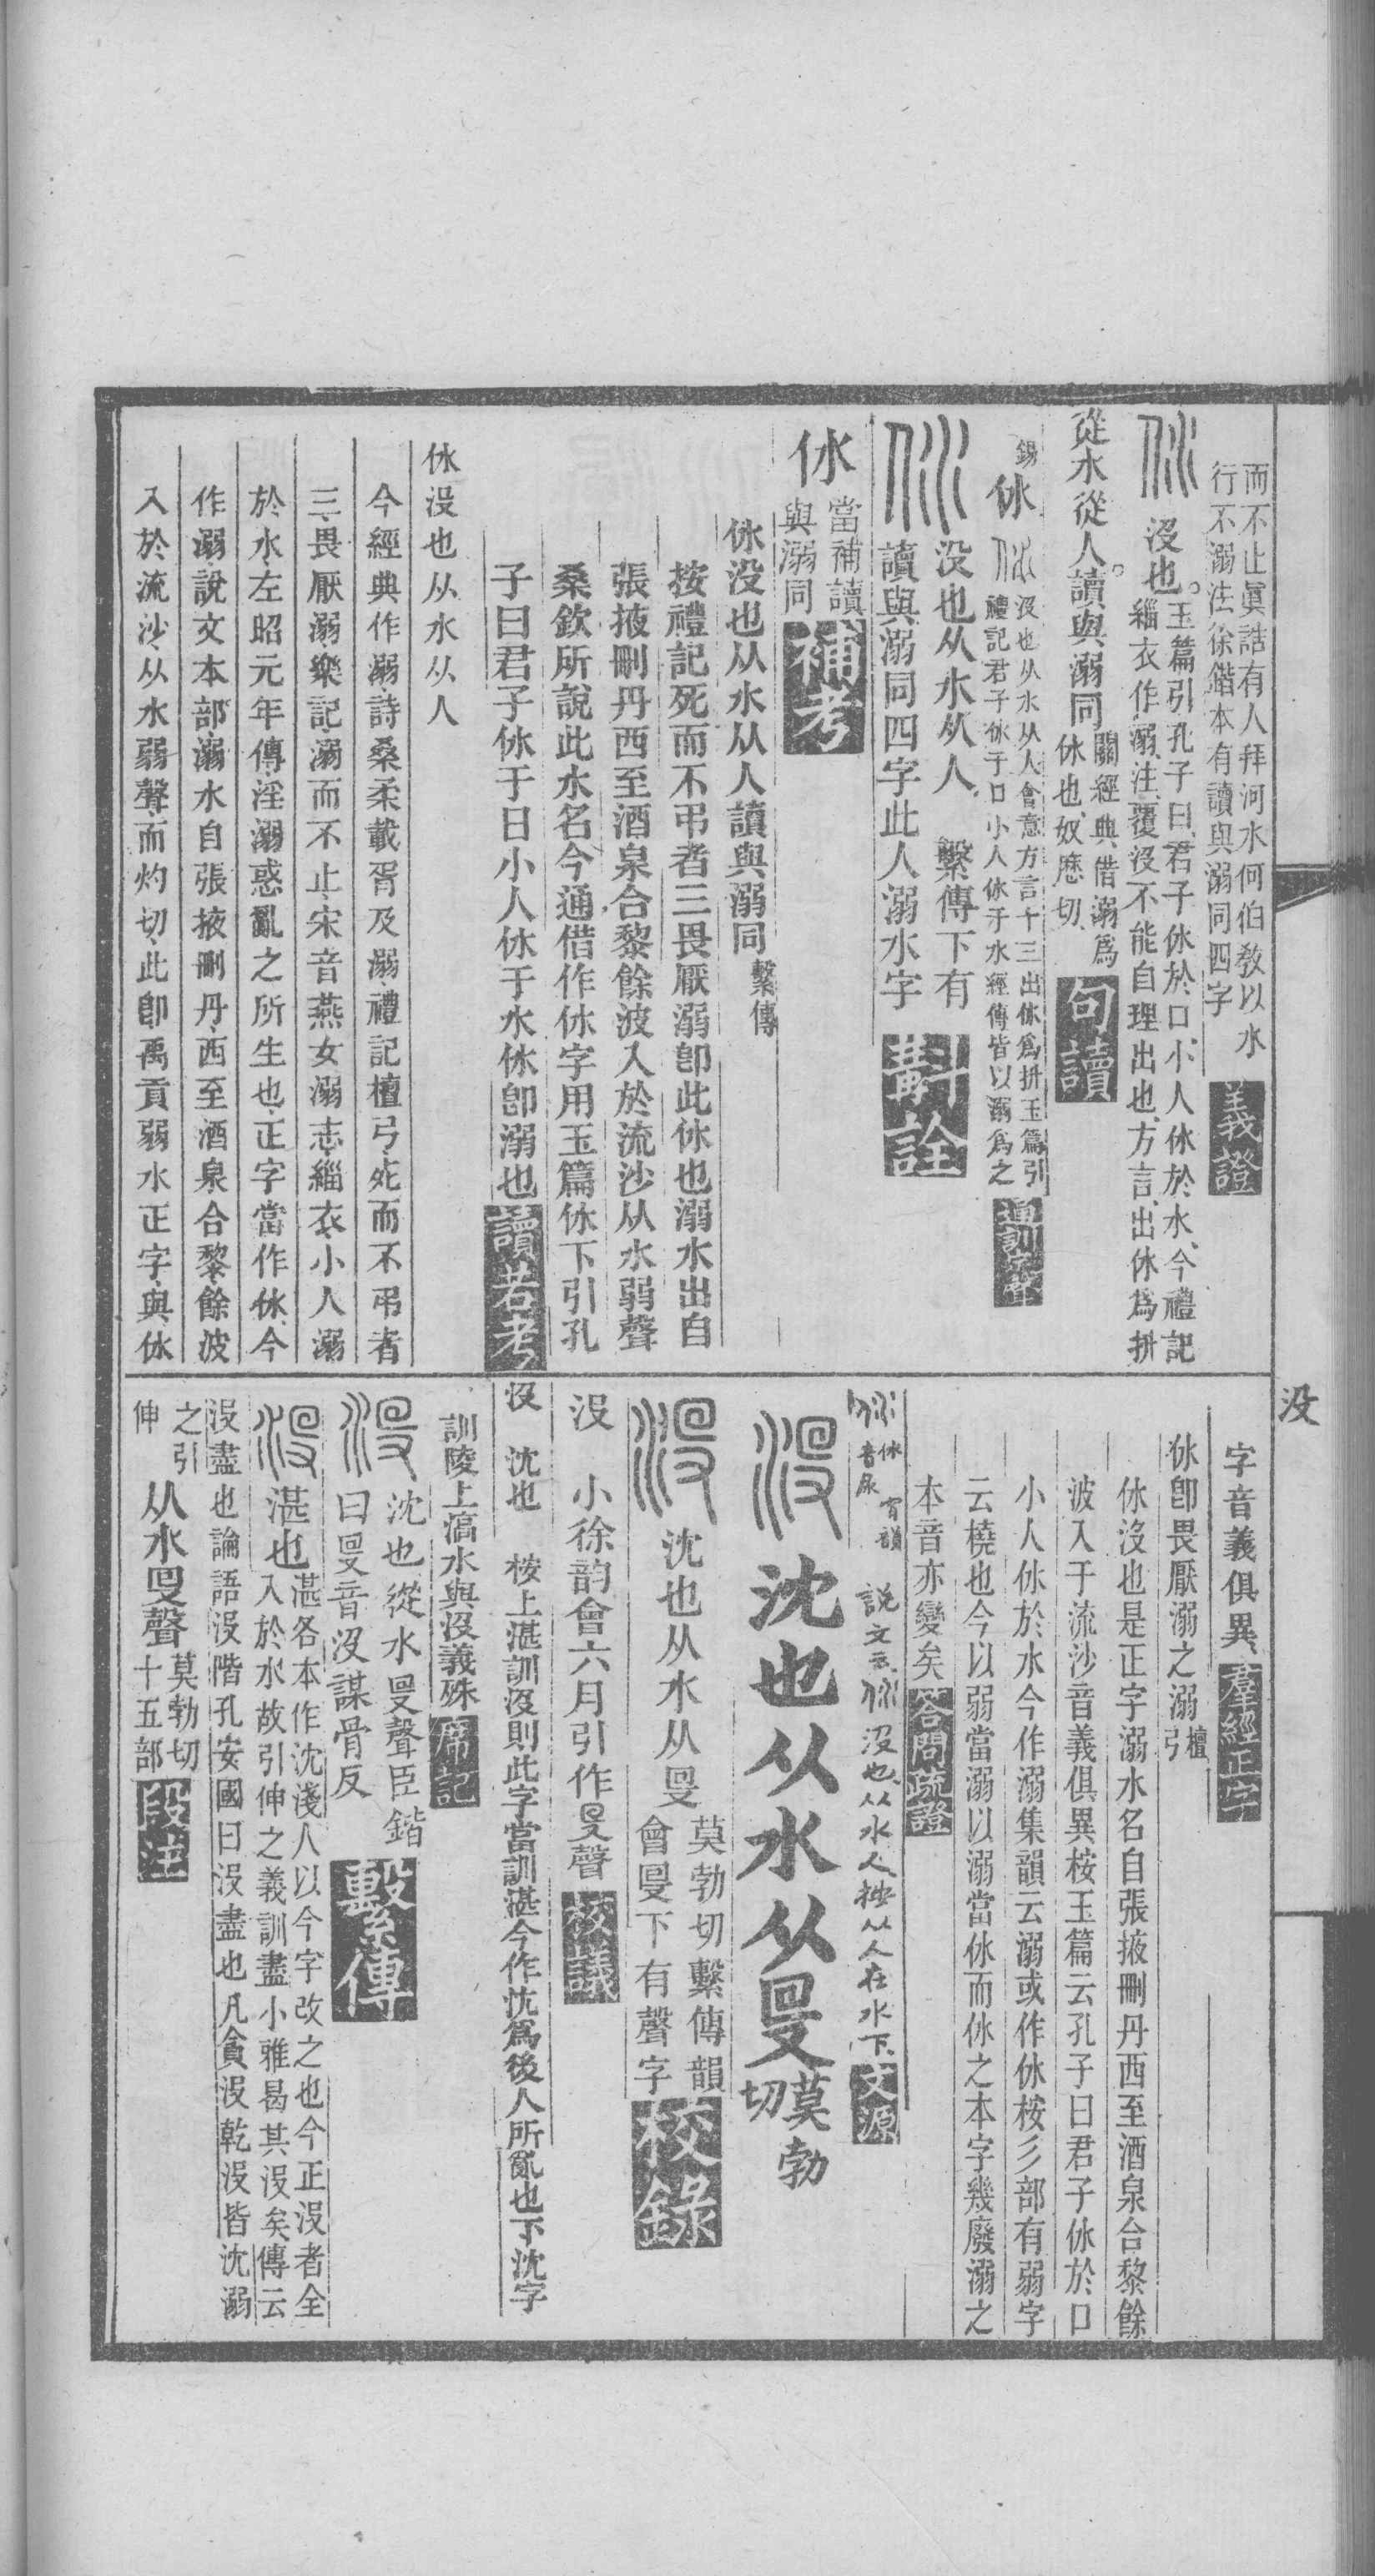 而不止眞誥有人拜河水何伯敎以水
行不溺法徐鍇本有讀與溺同四字
義證
㲻
沒也。
玉篇引孔子曰君子㲻於口、小人㲻於水、今禮記
緇衣作溺、注、覆沒不能自理出也、方言、出㲻爲拚
從水從人。讀與溺同
關經典借溺爲
㲻也、奴歷切、
句讀
錫
㲻
㲻
沒也从水从人會意方言十三出㲻爲拚玉篇引
禮記君子㲻于口小人㲻于水經傳皆以溺爲之
通訓定聲
㲻
沒也从水从人 繫傳下有
讀與溺同四字此人溺水字
斠詮
㲻
當補讀
與溺同
補考
㲻沒也从水从人讀與溺同繫傳
按禮記死而不弔者三畏厭溺卽此㲻也溺水出自
張掖刪丹西至酒泉合黎餘波入於流沙从水弱聲
桑欽所說此水名今通借作㲻字用玉篇㲻下引孔
子曰君子㲻于口小人㲻于水㲻卽溺也
讀若考
㲻沒也从水从人
今經典作溺、詩桑柔載胥及溺、禮記檀弓、死而不弔者
三、畏厭溺、樂記、溺而不止、宋音燕女溺志、緇衣、小人溺
於水、左昭元年傳、淫溺惑亂之所生也、正字當作㲻、今
作溺、說文本部、溺水自張掖刪丹、西至酒泉合黎、餘波
入於流沙、从水弱聲、而灼切、此卽禹貢弱水正字、與㲻
沒
字音義俱異、
羣經正字
㲻卽畏厭溺之溺檀弓
㲻沒也是正字溺水名自張掖刪丹西至酒泉合黎餘
波入于流沙音義俱異桉玉篇云孔子曰君子㲻於口
小人㲻於水今作溺集韻云溺或作㲻桉彡部有弱字
云橈也今以弱當溺以溺當㲻而㲻之本字幾廢溺之
本音亦變矣
答問疏證
㲻
㲻音尿
宵韻
說文云㲻沒也、从水人、按从人在水下、
文源
沒
沈也从水从𠬛
莫勃
切
沒
沈也从水从𠬛
莫勃切繫傳韻
會𠬛下有聲字
校錄
沒 小徐韵會六月引作𠬛聲
校議
沒 沈也 桉上湛訓沒則此字當訓湛今作沈爲後人所亂也下沈字
訓陵上滈水與沒義殊
席記
沒
沈也從水𠬛聲臣鍇
曰𠬛音沒謀骨反
繫傳
沒
湛也
湛各本作沈淺人以今字改之也今正沒者全
入於水故引伸之義訓盡小雅曷其沒矣傳云
沒盡也論語沒階孔安國曰沒盡也凡貪沒乾沒皆沈溺
之引
伸
从水𠬛聲
莫勃切
十五部
段注